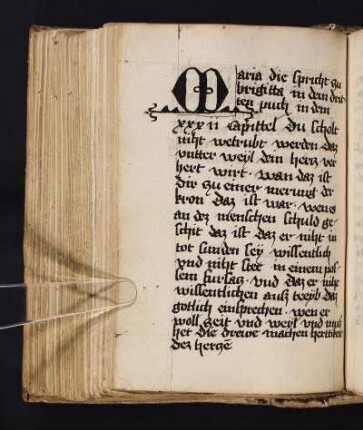 Maria die spricht zu
brigitta in dem drit
ten puch in dem
xxxii capittel Du scholt
niht wetrubt werden daz
vnter weyl dein hertz ver
hert wirt · wan daz ist
dir zu einer merung der
kron Daz ist war · wenn
an dez menschen schuld ge
schit daz ist daz er niht in
tot sunden sey wissentlich
vnd niht stet in einem pos
sem fursatz · vnd daz er niht
wissentlichen auß treyb daz
gotlich einsprechen · wen er
woll zeit vnd weyl vnd
het die machen
dez hertze